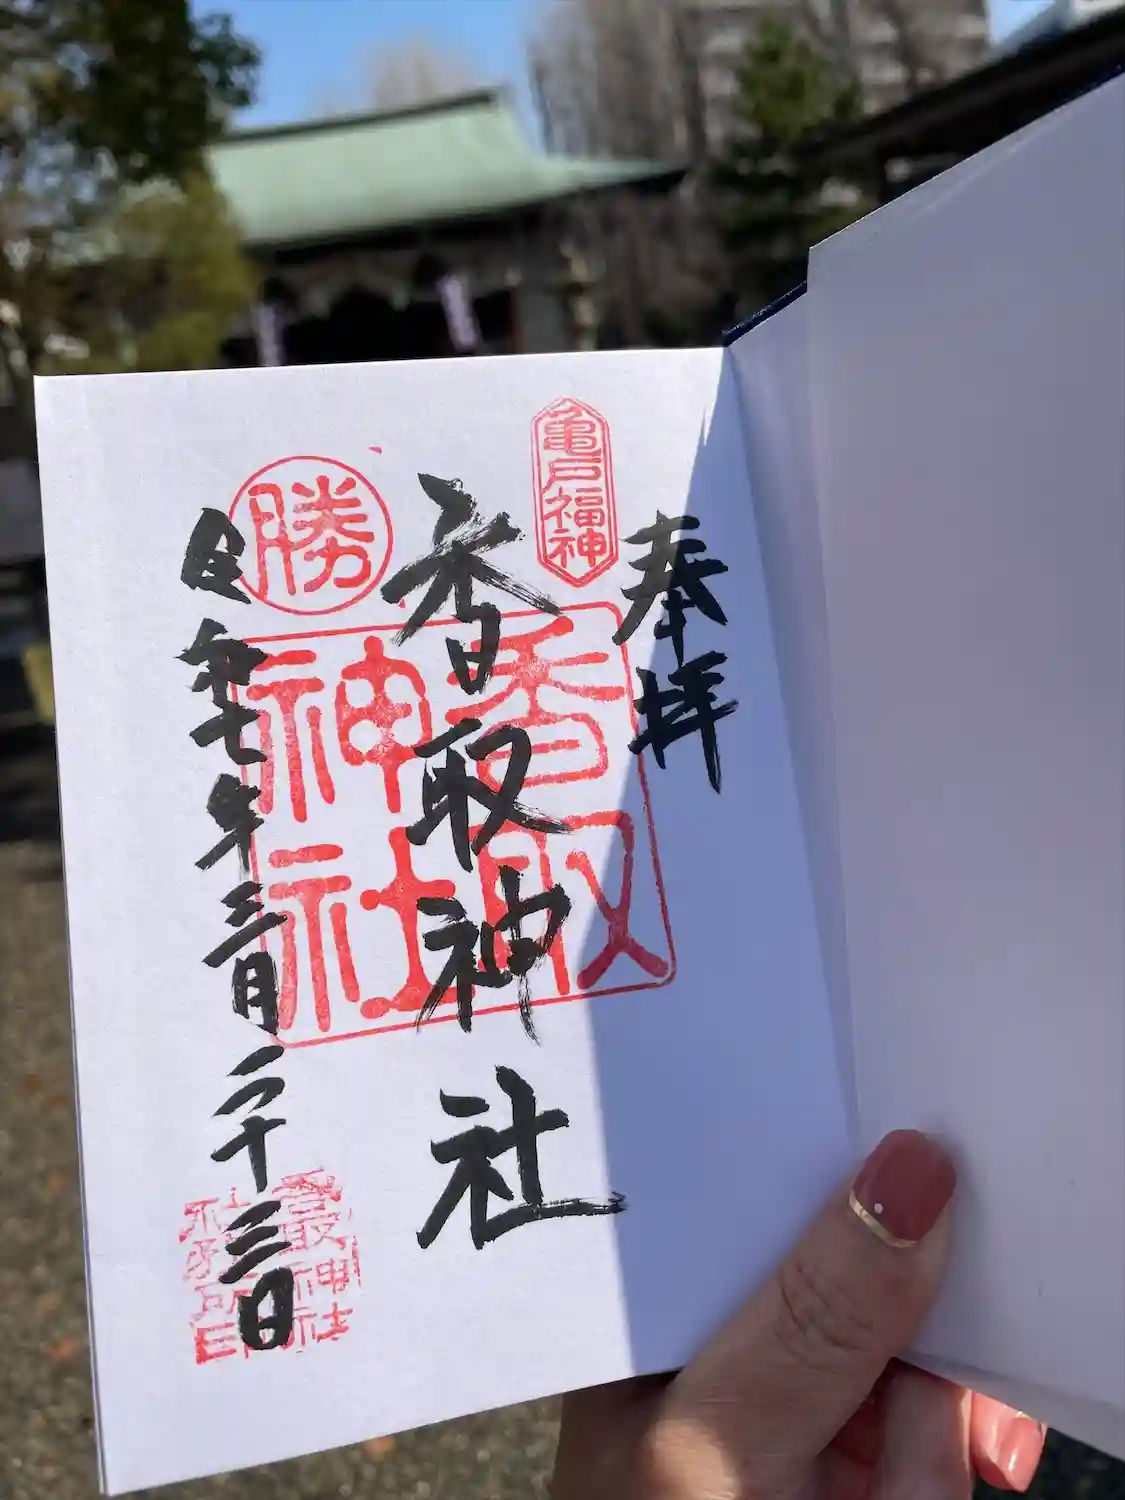 奉拝
亀戸福神
香取神社
香取
神社
勝
令和七年三月二十三日
香取神社